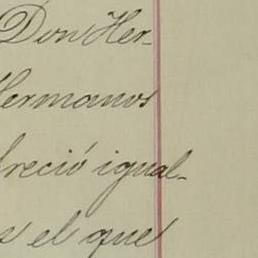 Don Her-
Hermanos
freció igual-
s el que